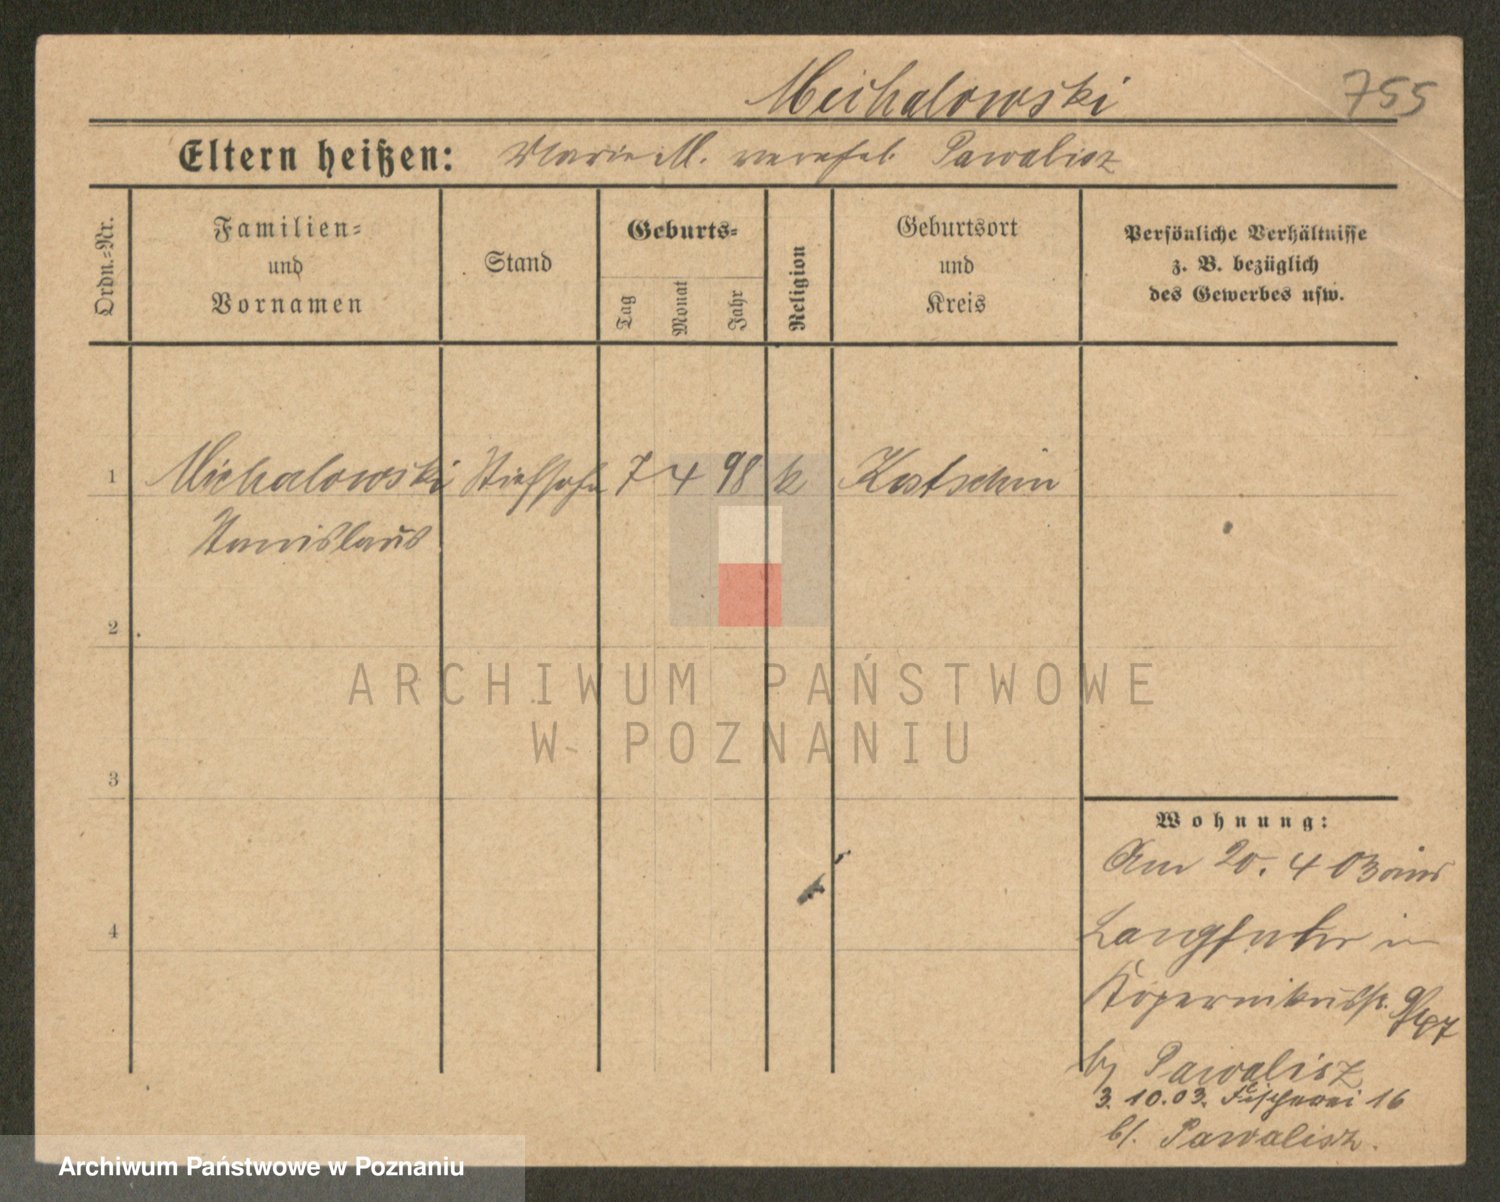 Michalowski
755
Eltern heißen: Marie M. verehel. Pawalisz
Ordn.-Nr.
Familien-
und
Vornamen
Stand
Geburts-
Tag
Monat
Jahr
Religion
Geburtsort
und
Kreis
Persönliche Verhältnisse
z. B. bezüglich
des Gewerbes usw.
1 Michalowski Stiefsohn 7 4 98 k Kostschin
Stanislaus
2
3
4
Wohnung:
Am 20. 4 03 aus
Langfuhr in
Kopernikusstr.
by Pawalisz
3. 10.03. Fischerei 16
b/. Pawalisz.
ARCHIWUM PAŃSTWOWE
W POZNANIU
Archiwum Państwowe w Poznaniu